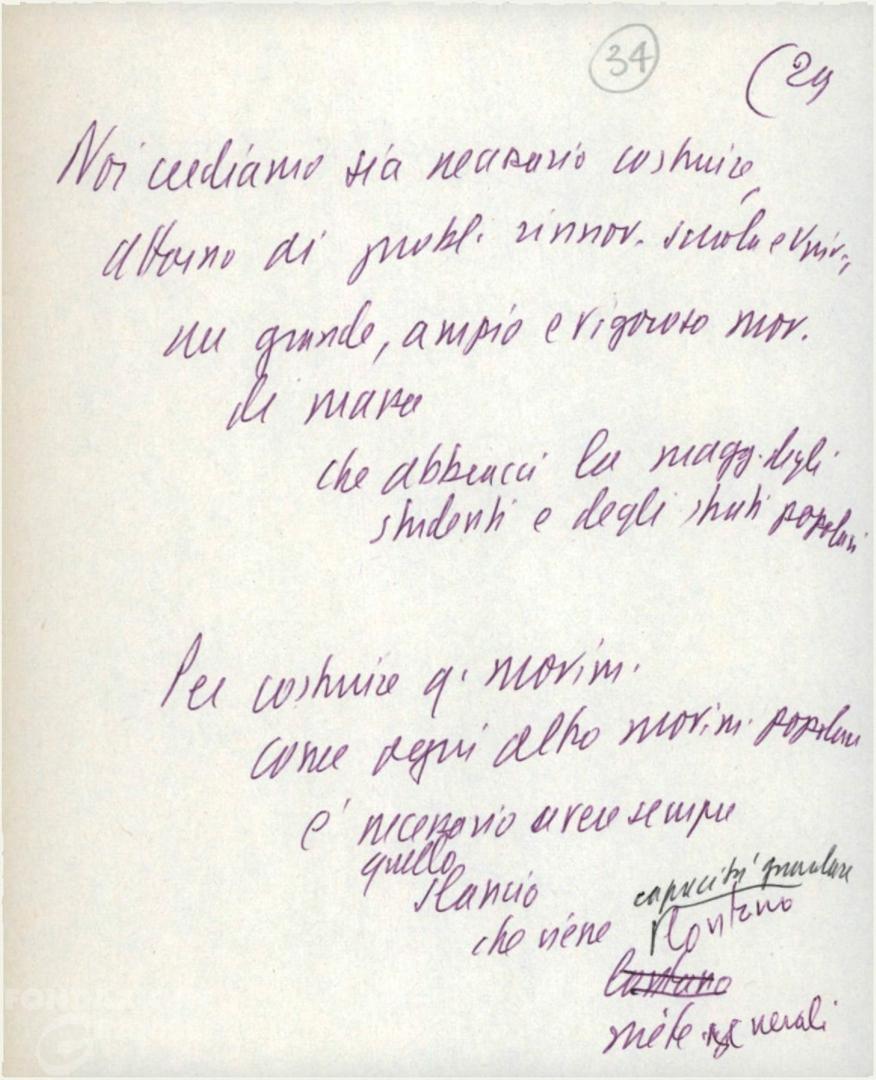 34
(29
Noi crediamo sia necessario costruire,
attorno ai probl. rinnov. scuola e Univ.,
un grande, ampio e vigoroso mov.
di massa
che abbracci la magg. degli
studenti e degli strati popolari
Per costruire q. movim.
come ogni altro movim. popolare
e' necessario avere sempre
quello
slancio
che viene
capacità guardare
lontano
lontano
mete generali
FONDAZ